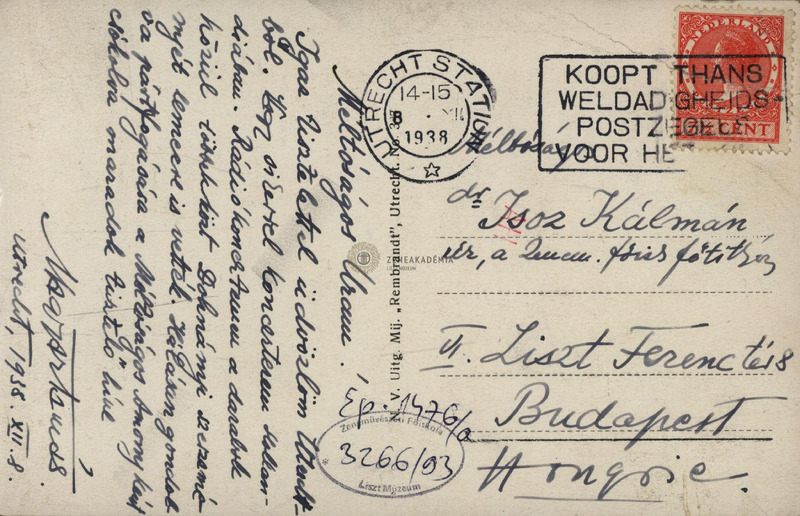 Méltóságos Uram!
Igaz tisztelettel üdvözlöm Utrecht-
ből. Nagy sikerrel koncerteztem
diában. Rádiókoncertemen a darabok
közül többek közt Dohnányi szerzemé-
nyét is vettek. Hálásan gondol-
va pártfogására a Méltóságos Asszony kezét
csókolva maradok tisztelő híve
Utrecht, 1938. XII. 8.
UTRECHT STATION
14-15
8 XII
1938
KOOPT THANS
WELDADIGHEIDS-
POSTZEGELS
VOOR HE
NEDERLAND
CENT
N. V. Uitg. Mij. „Rembrandt", Utrecht. No. 37
ZENEAKADÉMIA
LISZT MÚZEUM
Méltóságos
dr Isoz Kálmán
úr, a Zenem. főisk. főtitkára
VI. Liszt Ferenc tér 8
Budapest
Hongrie.
Ep. 1476/a
Zeneművészeti Főiskola
3266/93
Liszt Múzeum